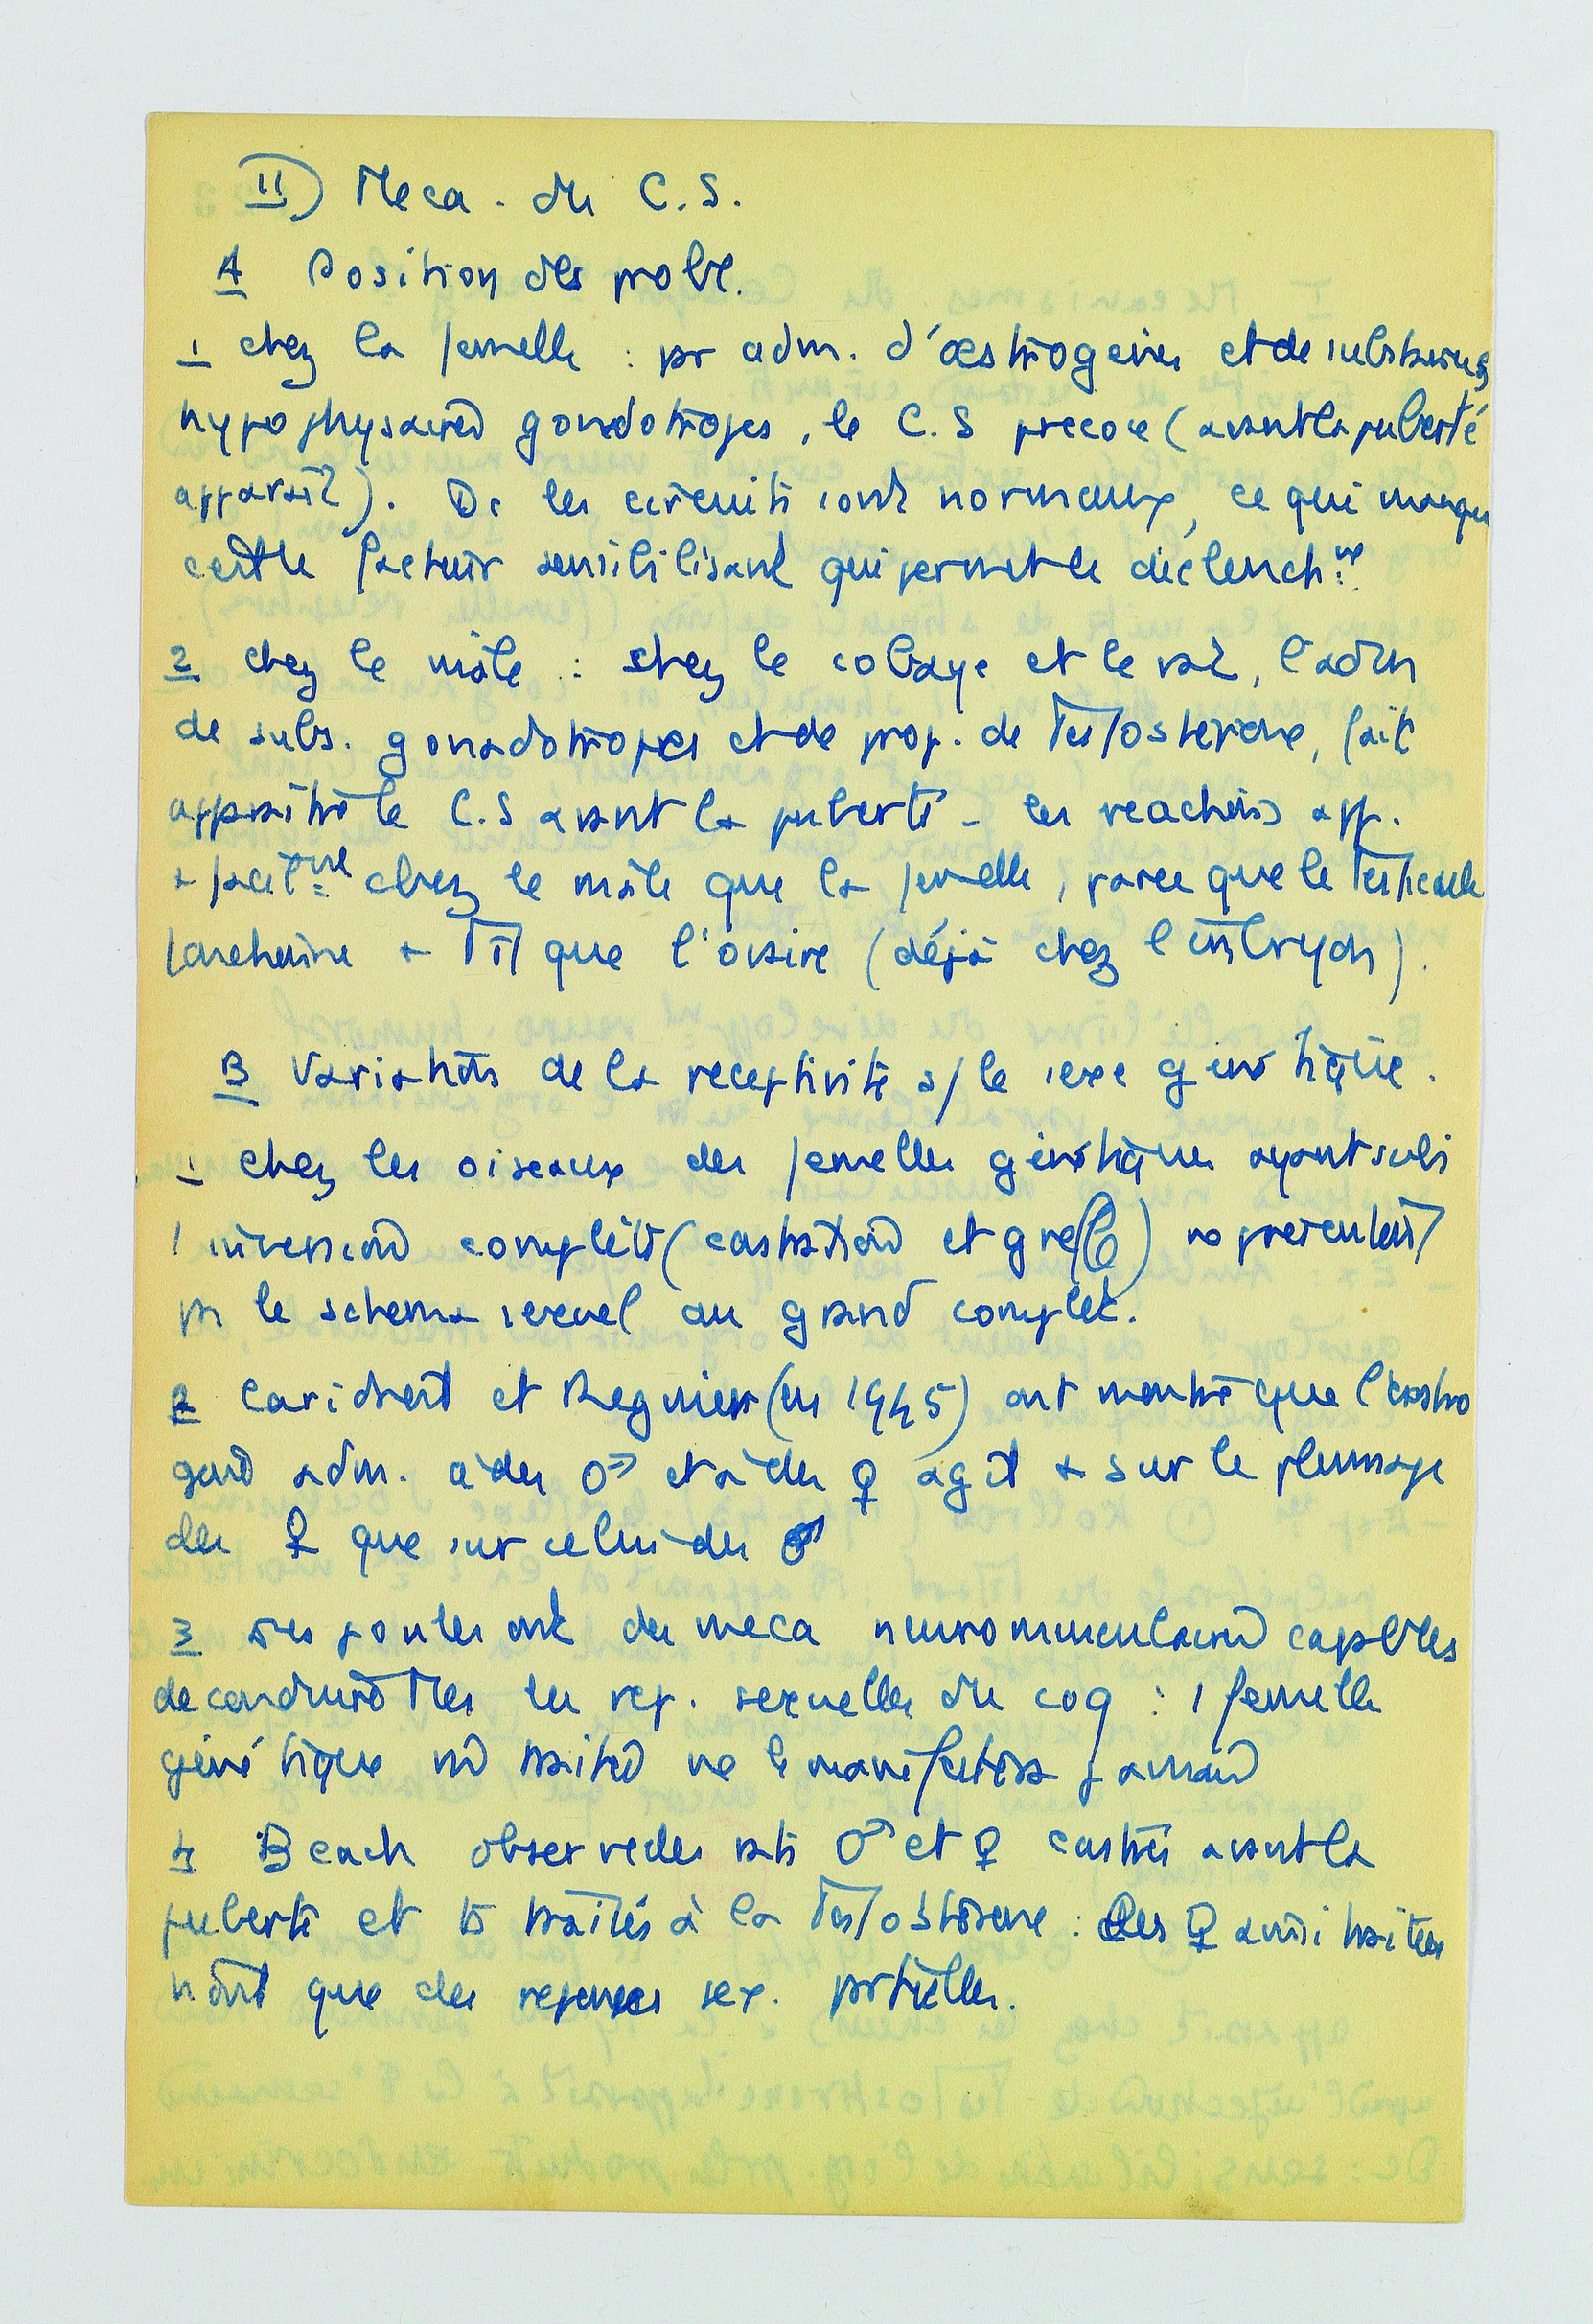 II) Meca. du C.S.
A Position des probl.
1 chez la femelle : pr adm. d'œstrogenes et de substances
hypophysaires gonadotropes, le C.S precoce (avant la puberté
apparait). Dc les circuits sont normaux, ce qui manque
c'est le facteur sensibilisant qui permet le déclench.nt
2 chez le mâle : chez le cobaye et le rat, l'adm
de subs. gonadotropes et de prop. de Testosterone, fait
apparaitre le C.S avant la puberté - les reactions app.
+ facil.ment chez le mâle que la femelle, parce que le Testicule
fonctionne + Tôt que l'ovaire (déjà chez l'embryon).
B Variations de la receptivité s/ le sexe génétique.
1 chez les oiseaux des femelles génétiques ayant subi
1 inversion complète (castration et greffe) ne présentent
pas le schema sexuel au grand complet.
2 Caridroit et Regnier (en 1945) ont montré que l'œstro
gène adm. à des ♂ et à des ♀ agit + sur le plumage
des ♀ que sur celui des ♂
3 Les poules ont des meca neuromusculaires capables
de conduire Tles les rep. sexuelles du coq : 1 femelle
génétique non traitée ne le manifestera jamais
4 Beach observe des rats ♂ et ♀ castrés avant la
puberté et ts traités à la Testosterone : Les ♀ ainsi traitées
n'ont que des reponses sex. partielles.